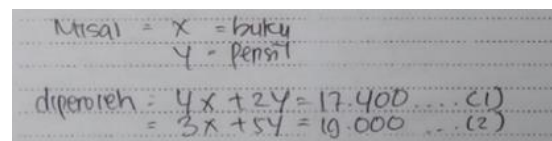 Misal = x = buku
y = Pensil
diperoleh = 4x + 2y = 17.400 .... (1)
= 3x + 5y = 19.000 ... (2)